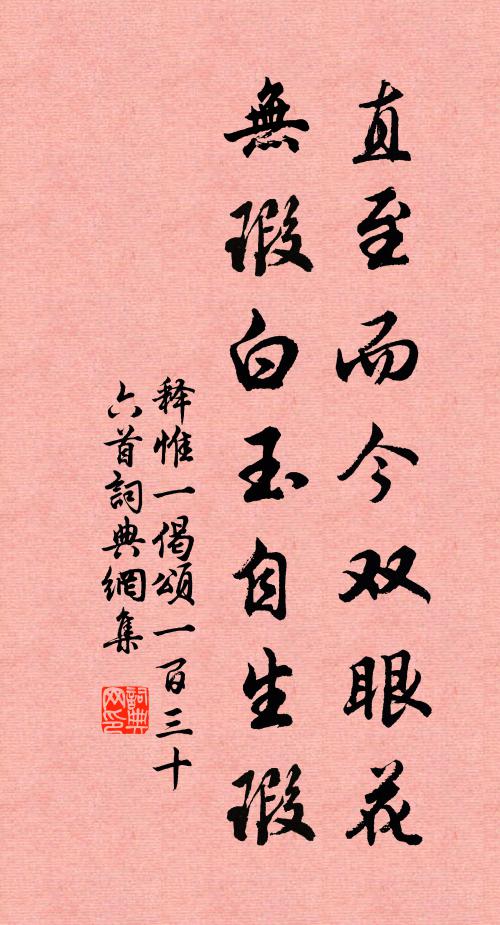 直至而今双眼花
無瑕白玉自生瑕
释惟一偈頌一百三十
六首詞典網集
詞典网印